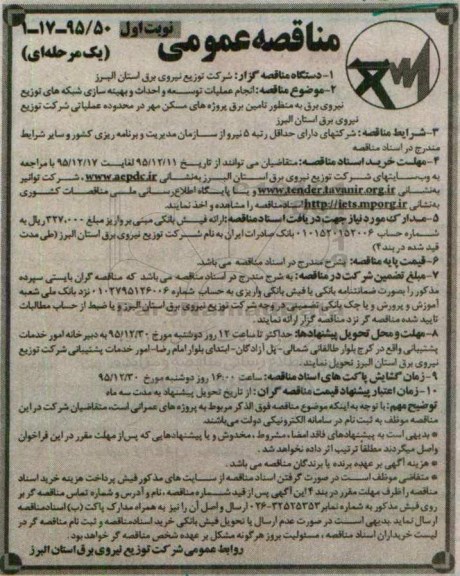 نوبت اول
۱-۱۷-۹۵/۵۰
مناقصه عمومی
(یک مرحله‌ای)
۱-دستگاه مناقصه گزار: شرکت توزیع نیروی برق استان البرز
۲-موضوع مناقصه: انجام عملیات توسعه و احداث و بهینه سازی شبکه های توزیع
نیروی برق به منظور تامین برق پروژه های مسکن مهر در محدوده عملیاتی شرکت توزیع
نیروی برق استان البرز
۳-شرایط مناقصه: شرکتهای دارای حداقل رتبه ۵ نیرو از سازمان مدیریت و برنامه ریزی کشور و سایر شرایط
مندرج در اسناد مناقصه
۴-مهلت خرید اسناد مناقصه: متقاضیان می توانند از تاریخ ۹۵/۱۲/۱۱ لغایت ۹۵/۱۲/۱۷ با مراجعه
به وب‌سایتهای شرکت توزیع نیروی برق استان البرز به‌نشانی www.aepdc.ir ، شرکت توانیر
به‌نشانی www.tender.tavanir.org.ir و یا پایگاه اطلاع‌رسانی ملی مناقصات کشوری
به‌نشانی http://iets.mporg.ir اسناد مناقصه را مشاهده و اخذ نمایند.
۵-مدارک مورد نیاز جهت دریافت اسناد مناقصه: ارائه فیش بانکی مبنی بر واریز مبلغ ۳۲۷،۰۰۰ ریال به
شماره حساب ۰۱۰۱۵۲۰۱۵۲۰۰۶ بانک صادرات ایران به نام شرکت توزیع نیروی برق استان البرز (طی مدت
قید شده در بند ۴)
۶-قیمت پایه مناقصه: بشرح مندرج در اسناد مناقصه می باشد.
۷-مبلغ تضمین شرکت در مناقصه: به شرح مندرج در اسناد مناقصه می باشد که مناقصه گران بایستی سپرده
مذکور را بصورت ضمانتنامه بانکی یا فیش بانکی واریزی به حساب شماره ۰۱۰۲۷۹۵۱۲۶۰۰۶ نزد بانک ملی شعبه
آموزش و پرورش و یا چک بانکی تضمینی در وجه شرکت توزیع نیروی برق استان البرز و یا ضبط از حساب مطالبات
تایید شده مناقصه گر نزد مناقصه گزار ارائه نمایند.
۸-مهلت و محل تحویل پیشنهادها: حداکثر تا ساعت ۱۲ روز دوشنبه مورخ ۹۵/۱۲/۳۰ به دبیرخانه امور خدمات
پشتیبانی واقع در کرج بلوار طالقانی شمالی-پل آزادگان-ابتدای بلوار امام رضا-امور خدمات پشتیبانی شرکت توزیع
نیروی برق استان البرز تحویل نمایند.
۹-زمان گشایش پاکت های اسناد مناقصه: ساعت ۱۶:۰۰ روز دوشنبه مورخ ۹۵/۱۲/۳۰
۱۰-زمان اعتبار پیشنهاد قیمت مناقصه گران: از تاریخ تحویل پیشنهاد به مدت سه ماه
توضیح مهم: با توجه به اینکه موضوع مناقصه فوق الذکر مربوط به پروژه های عمرانی است، متقاضیان شرکت در این
مناقصه موظف به ثبت نام در سامانه الکترونیکی دولت می‌باشند.
* بدیهی است به پیشنهادهای فاقد امضاء، مشروط، مخدوش و یا پیشنهادهایی که پس از مهلت مقرر در این فراخوان
واصل میگردند مطلقاً ترتیب اثر داده نخواهد شد.
* هزینه آگهی بر عهده برنده یا برندگان مناقصه می باشد.
* متقاضی موظف است در صورت گرفتن اسناد مناقصه از سایت های مذکور فیش پرداخت هزینه خرید اسناد
مناقصه را ظرف مهلت مقرر در بند ۴ این آگهی پس از قید شماره مناقصه، نام و آدرس و شماره تماس مناقصه گر بر
روی فیش مذکور به شماره نمابر ۳۲۵۲۵۳۵۳-۰۲۶ ارسال و اصل آن را نیز به همراه مدارک پاکت (ب) اسناد مناقصه
ارسال نماید بدیهی است در صورت عدم ارسال یا تحویل فیش بانکی خرید اسناد مناقصه و ثبت نام مناقصه گر در
لیست خریداران اسناد مناقصه، مسئولیت بروز هرگونه مشکل بر عهده شخص مناقصه گر خواهد بود.
روابط عمومی شرکت توزیع نیروی برق استان البرز